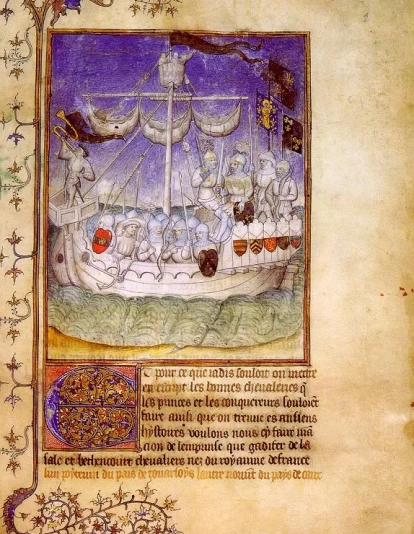 t pour ce que iadis souloit on mectre
en escript les bonnes cheualeries q
les princes et les conquereurs souloiet
faire ainsi que on treuue es ansiens
hystoires voulons nous cy faire ma
cion de lemprinse que gadifer de la
sale et bethencourt cheualiers nez du royaume de france
lun poyteuin du pais de touarsoys lautre normt du pays de caux